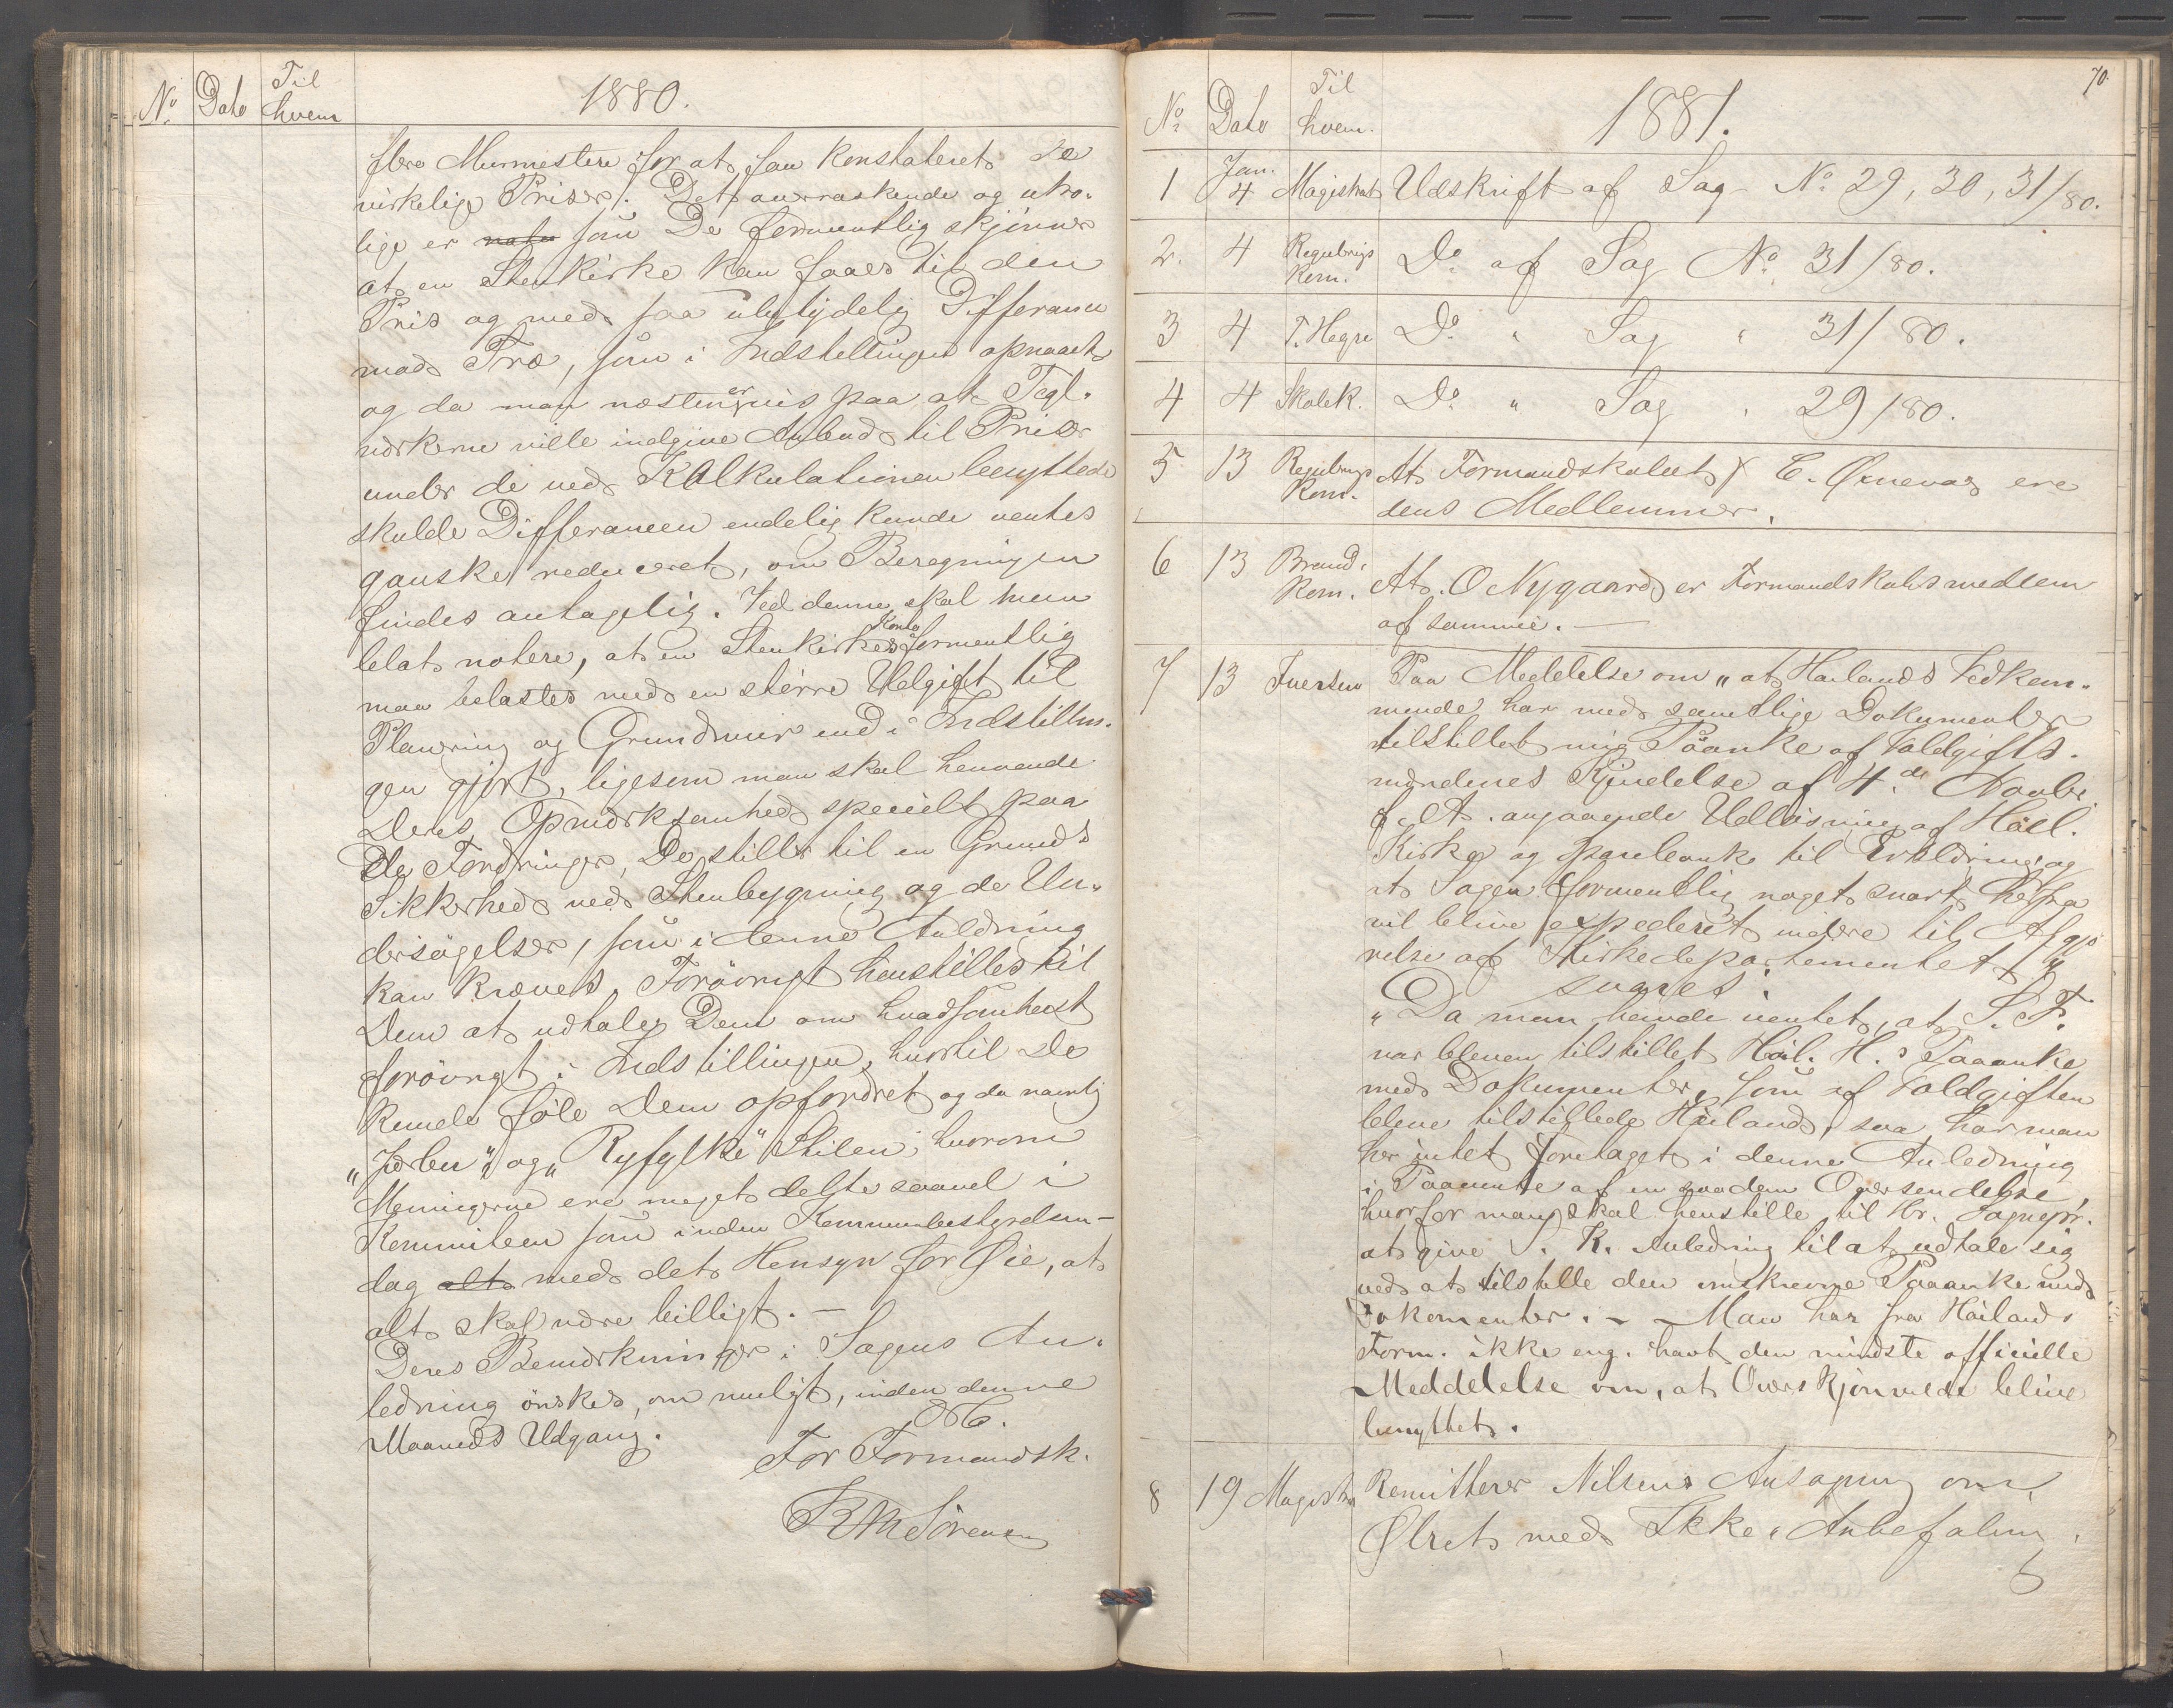 No. Dato Til hvem 1880.
flere Murmestere for at faa konstateret de
virkelige Priser. Det overraskende og utro-
lige er som De formentlig skjønner
at en Stenkirke kan faaes til den
Pris og med saa ubetydelig Differance
mod Træ, som i Indstillingen opnaaet
og da man næsten er vis paa at Tegl-
værkerne ville indgive Anbud til Priser
under de ved Kalkulationen benyttede
skulde Differancen endelig kunde ventes
ganske reduceret, om Beregningen
findes antagelig. Ved denne skal
notere, at en Stenkirkes Konto formentlig
maa belastes med en större Udgift til
Planering og Grundmur end i Indstillin-
gen gjort, ligesom man skal henvende
Deres Opmærksomhed specielt paa
de Fordringer, De stiller til en Grunds
Sikkerhed ved Stenbygning og de Un-
dersögelser, som i denne Anledning
kan kræves. Forövrigt henstilles til
Dem at udtale Dem om hvadsomhelst
forövrigt i Indstillingen, hvortil De
kunde föle Dem opfordret og da navnlig
"Jæder" og "Ryfylke" Stilen, hvorom
Meningerne ere meget delte saavel i
Kommiteen som inden Kommunbestyrelsen
dog alt med det Hensyn for Øie, at
alt skal være billigt. —
Deres Bemærkninger i Sagens An-
ledning önskes, om muligt, inden denne
Maaneds Udgang.
For Formandsk.
Sörensen
70
No. Dato Til hvem. 1881.
1 Jan. 4 Magistrat Udskrift af Sag No. 29, 30, 31/80.
2. 4 Regulerings Kom. Do. af Sag No. 31/80.
3 4 T. Hegre Do. " Sag " 31/80.
4 4 Skolek. Do. " Sag " 29/80.
5 13 Regulerings Kom. At Formandskabet & C. ere
dens Medlemmer.
6 13 Brand. Kom. At O Nygaard er Formandskabsmedlem
af samme. —
7 13 Iversen Paa Meddelelse om "at Hailands Vedkom-
mende har med samtlige Dokumenter
tilstillet mig Paaanke af Voldgifts-
mændenes Kjendelse af 4de Novbr
f. A. angaaende Udlösning af Hail.
Kirke og Sparebanke til Erklæring, og
at Sagen formentlig noget snart herfra
vil blive expederet videre til Afgjö-
relse af Kirkedepartementet"
svares:
"Da man havde ventet, at S. F.
var bleven tilstillet Hail. H.s Paaanke
med Dokumenter, som af Voldgiften
bleve tilstillede Hailand, saa har man
her intet foretaget i denne Anledning
i Paavente af en saadan Oversendelse,
hvorfor man skal henstille til Hr. Sognepr.
at give S. K. Anledning til at udtale sig
ved at tilstille den omskrevne Paaanke med
Dokumenter. — Man har fra Hailands
Form. ikke eng. havt den mindste officielle
Meddelelse om, at Overskjön vilde blive
benyttet.
8 19 Magistr. Remitterer Nilsens Ansögning om
Ølret med Ikke-Anbefaling.